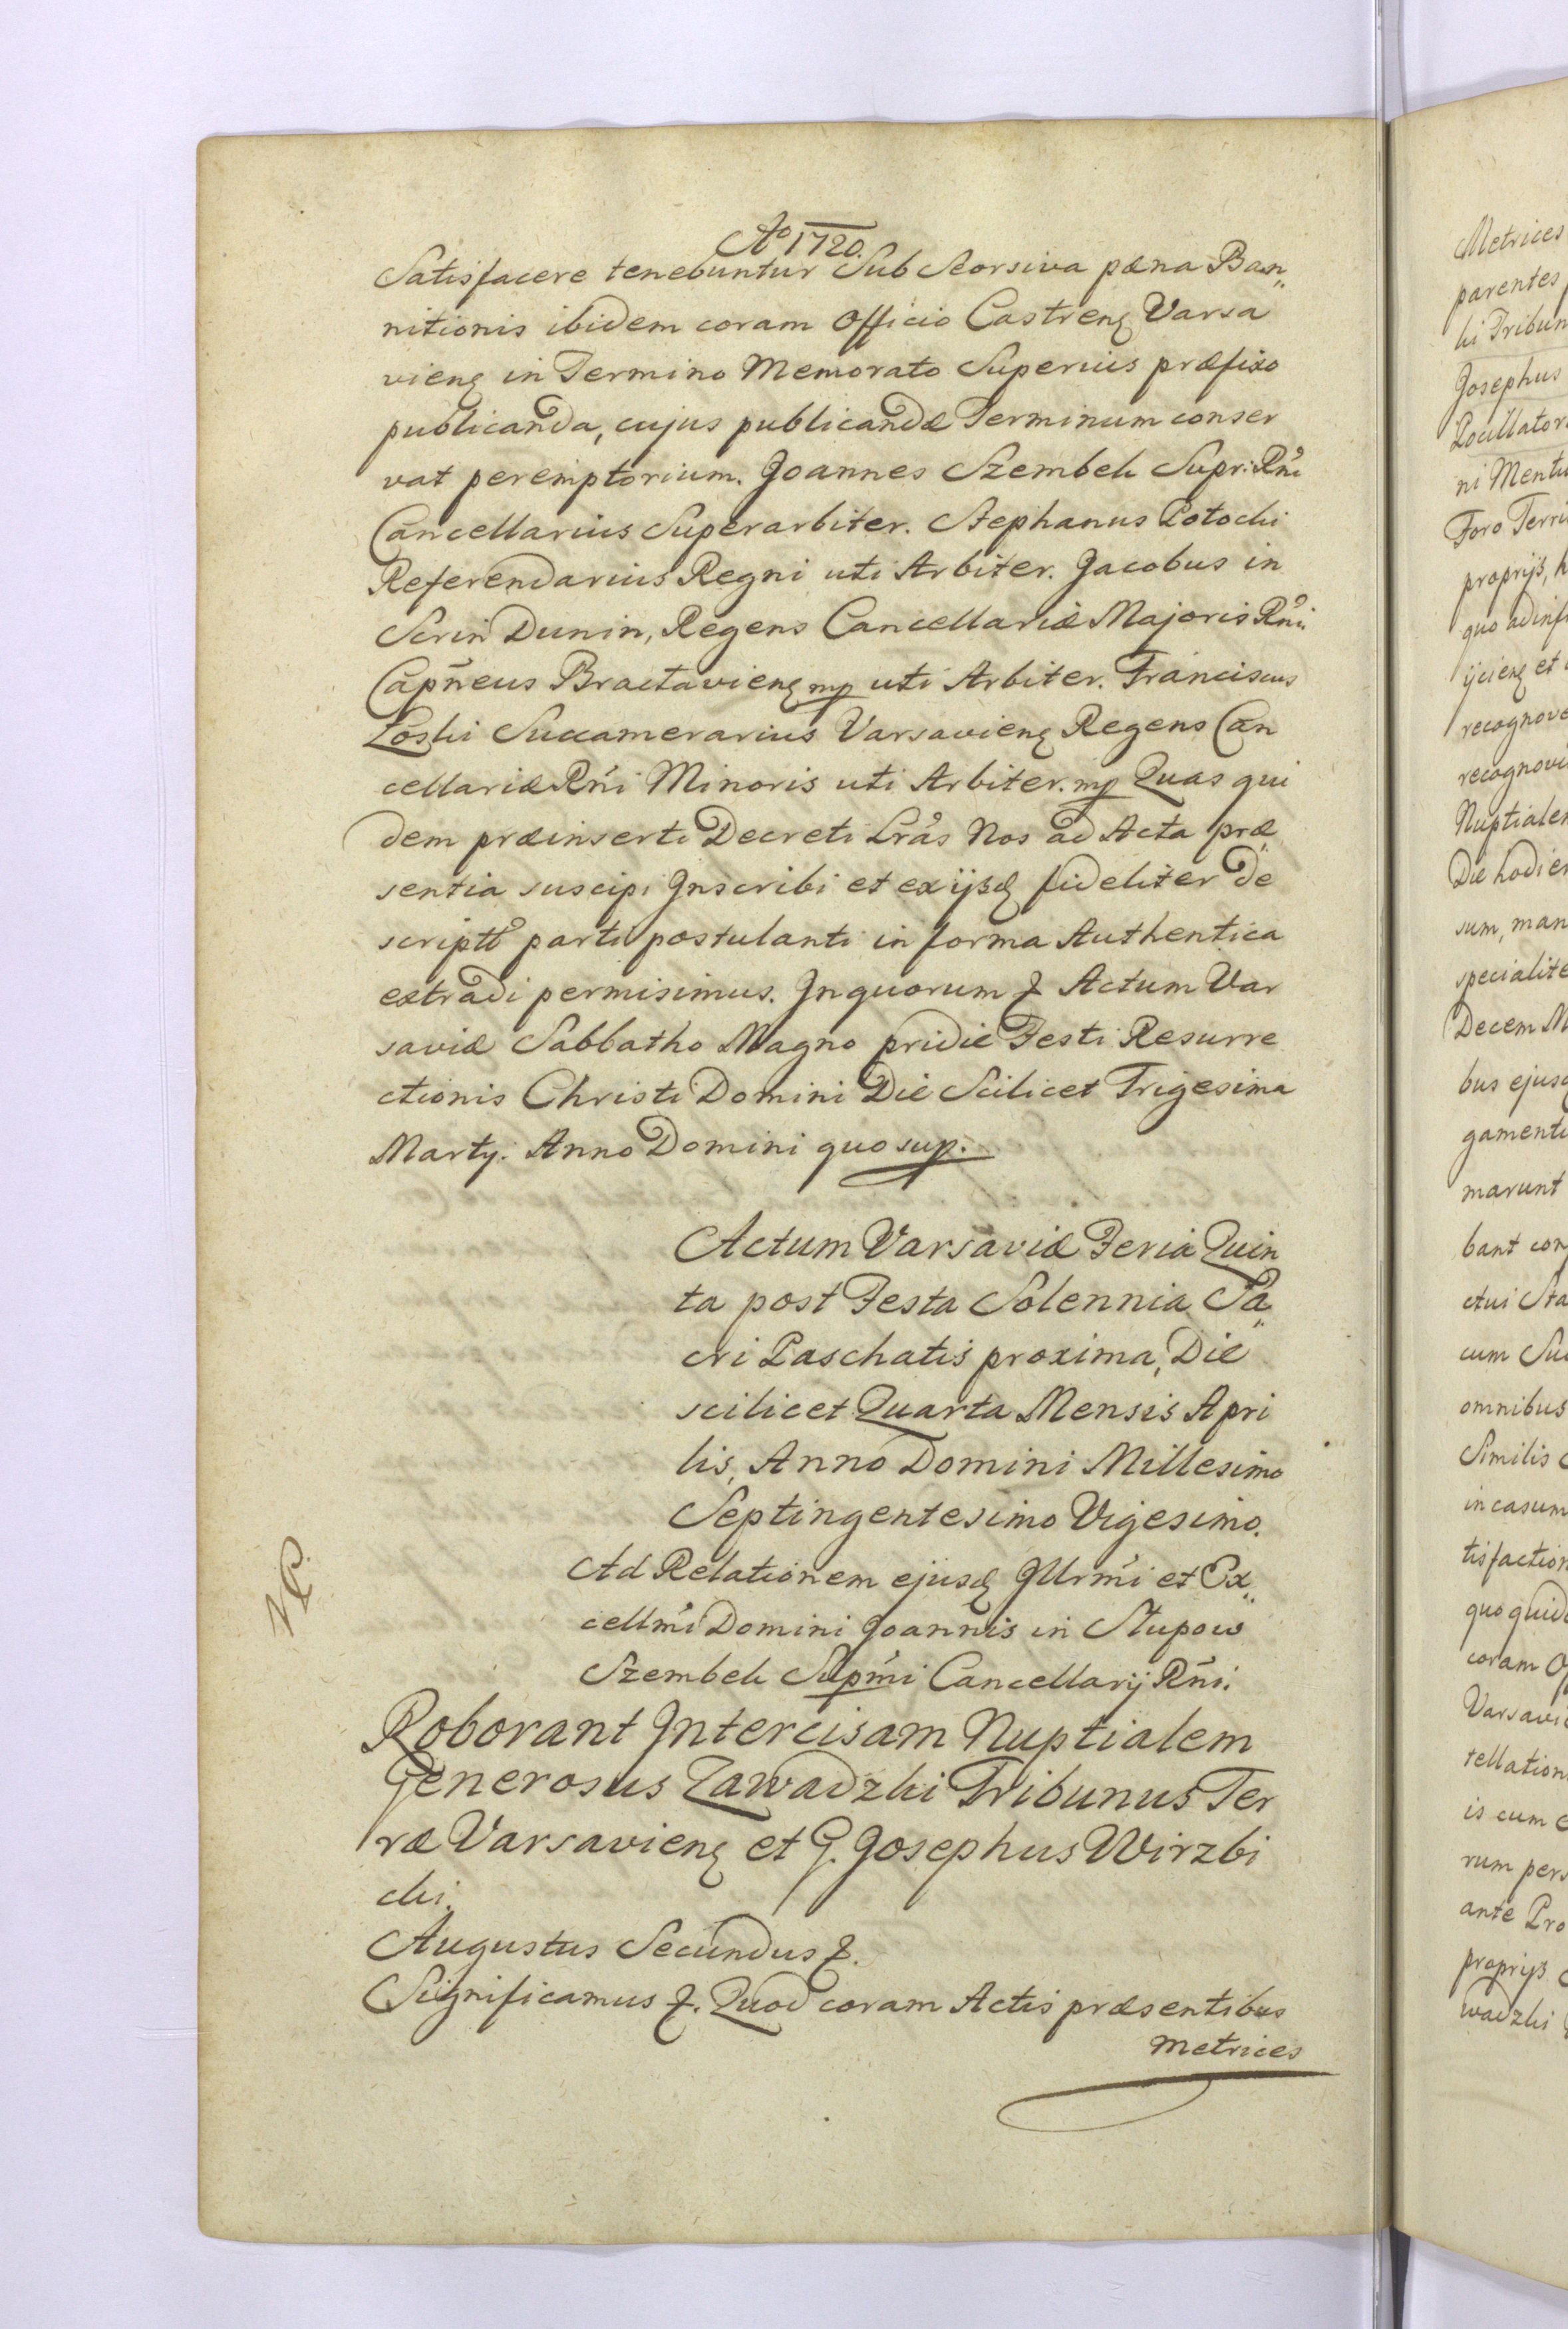 Aº 1720.
Satisfacere tenebuntur Sub Seorsiva pæna Ban„
nitionis ibidem coram Officio Castrenɘ Varsa
vienɘ in Termino Memorato Superius præfixo
publicanda, cujus publicandæ Terminum conser
vat peremptorium. Joannes Szembek Supr: Rni
Cancellarius Superarbiter. Stephanus Potocki
Referendarius Regni uti Arbiter. Jacobus in
Skrin Dunin, Regens Cancellariæ Majoris Rni:
Capneus Bractavienɘ mp uti Arbiter. Franciscus
Loski Succamerarius Varsavienɘ Regens Can
cellariæ Rni Minoris uti Arbiter. mp Quas qui
dem præinserti Decreti Lras Nos ad Acta præ„
sentia suscipi Inscribi et ex ijsdɘ fideliter de
scriptt parti postulanti in forma Authentica
extradi permisimus. In quorum &. Actum Var
saviæ Sabbatho Magno pridie Festi Resurre
ctionis Christi Domini Die Scilicet Trigesima
Martij. Anno Domini quo sup.
Actum Varsaviæ Feria Quin
ta post Festa Solennia Sa„
cri Paschatis proxima, Die
scilicet Quarta Mensis Apri
lis, Anno Domini Millesimo
Septingentesimo Vigesimo.
Ad Relationem ejusdɘ Jllrmi et Ex„
cellmi Domini Joannis in Slupow
Szembek Supmi Cancellarij Rni.
Roborant Intercisam Nuptialem
Generosus Zawadzki Tribunus Ter
ræ Varsavienɘ et G. Josephus Wirzbi
cki.
Augustus Secundus &.
Significamus &. Quod coram Actis præsentibus
Metrices
Metrices
parentes
ki Tribun
Josephus
Pocillator
ni Mentu
Foro Terri
proprijs, h
quo ad inf
ijcienɘ et
recognove
recognovi
Nuptialem
Die hodier
sum, man
specialite
Decem M
bus ejusɘ
gamenti
marunt
bant con
ctui Sta
cum Su
omnibus
Similis
in casum
tisfaction
quo quide
coram Of
Varsavie
tellation
is cum
rum pers
ante Pro
proprijs
wadzki